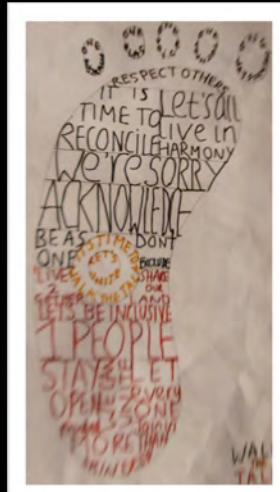 RESPECT OTHERS
IT IS
TIME TO
RECONCILE
Let's all
live in
HARMONY
We're SORRY
ACKNOWLEDGE
BE AS
ONE
DON'T
EXCLUDE
IT'S TIME TO
WALK THE TALK
LET'S
UNITE
LIVE
2
GETHER
SHARE
OUR
LAND
LETS BE INCLUSIVE
1 PEOPLE
STAY
OPEN
LET
every
ONE
MORE THAN
WAL
THE
TAL